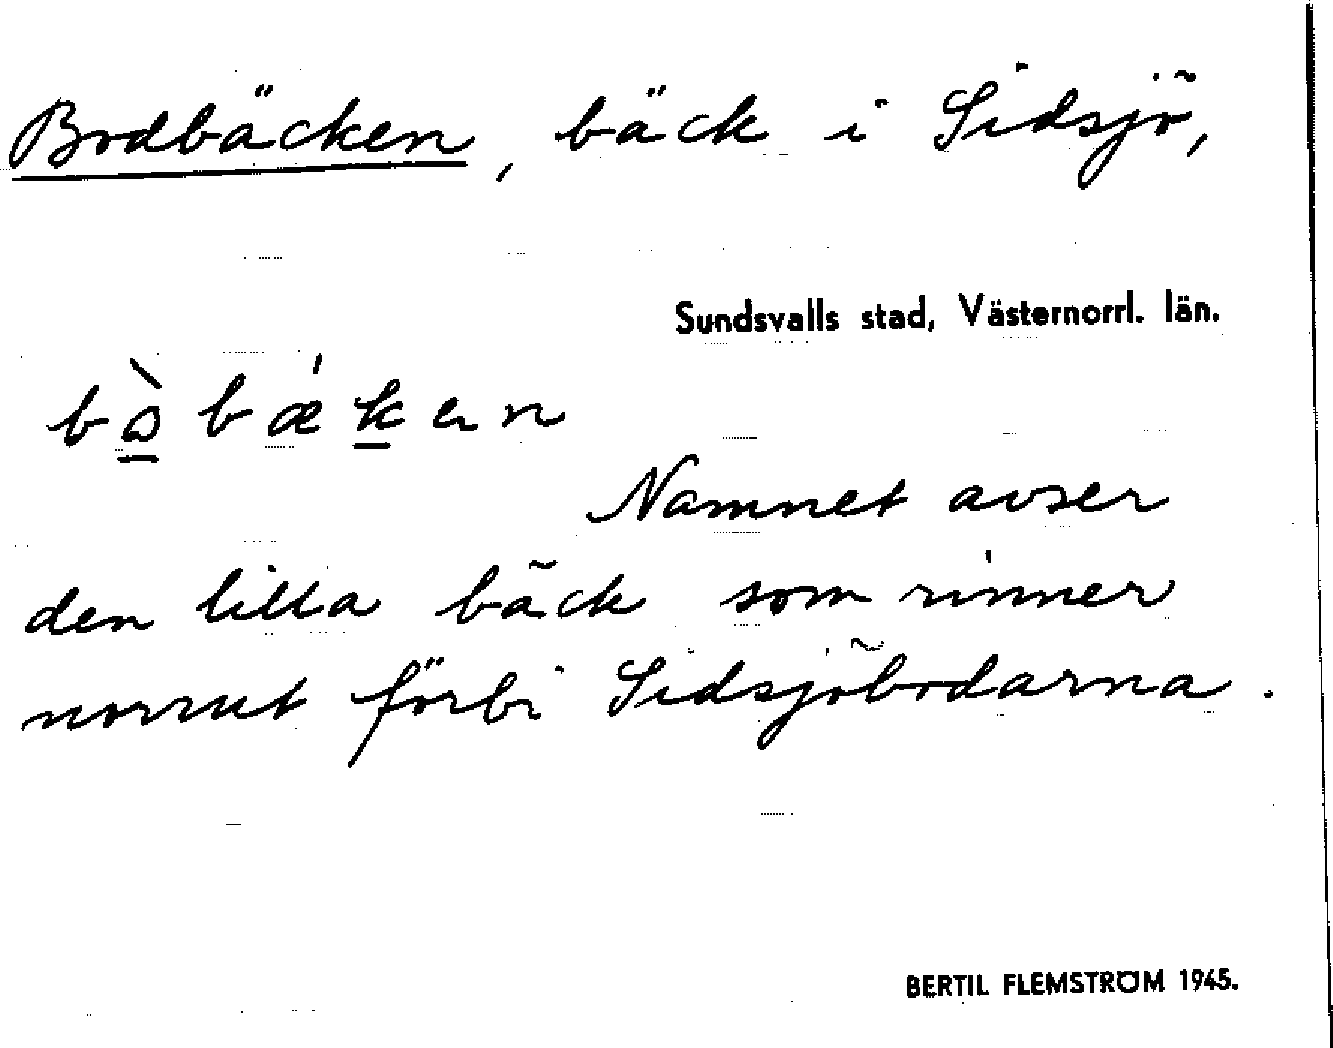 Bodbäcken, bäck i Sidsjö,
Sundsvalls stad, Västernorrl. län.
Namnet avser
den lilla bäck som rinner
norrut förbi Sidsjöbodarna.
BERTIL FLEMSTRÖM 1945.